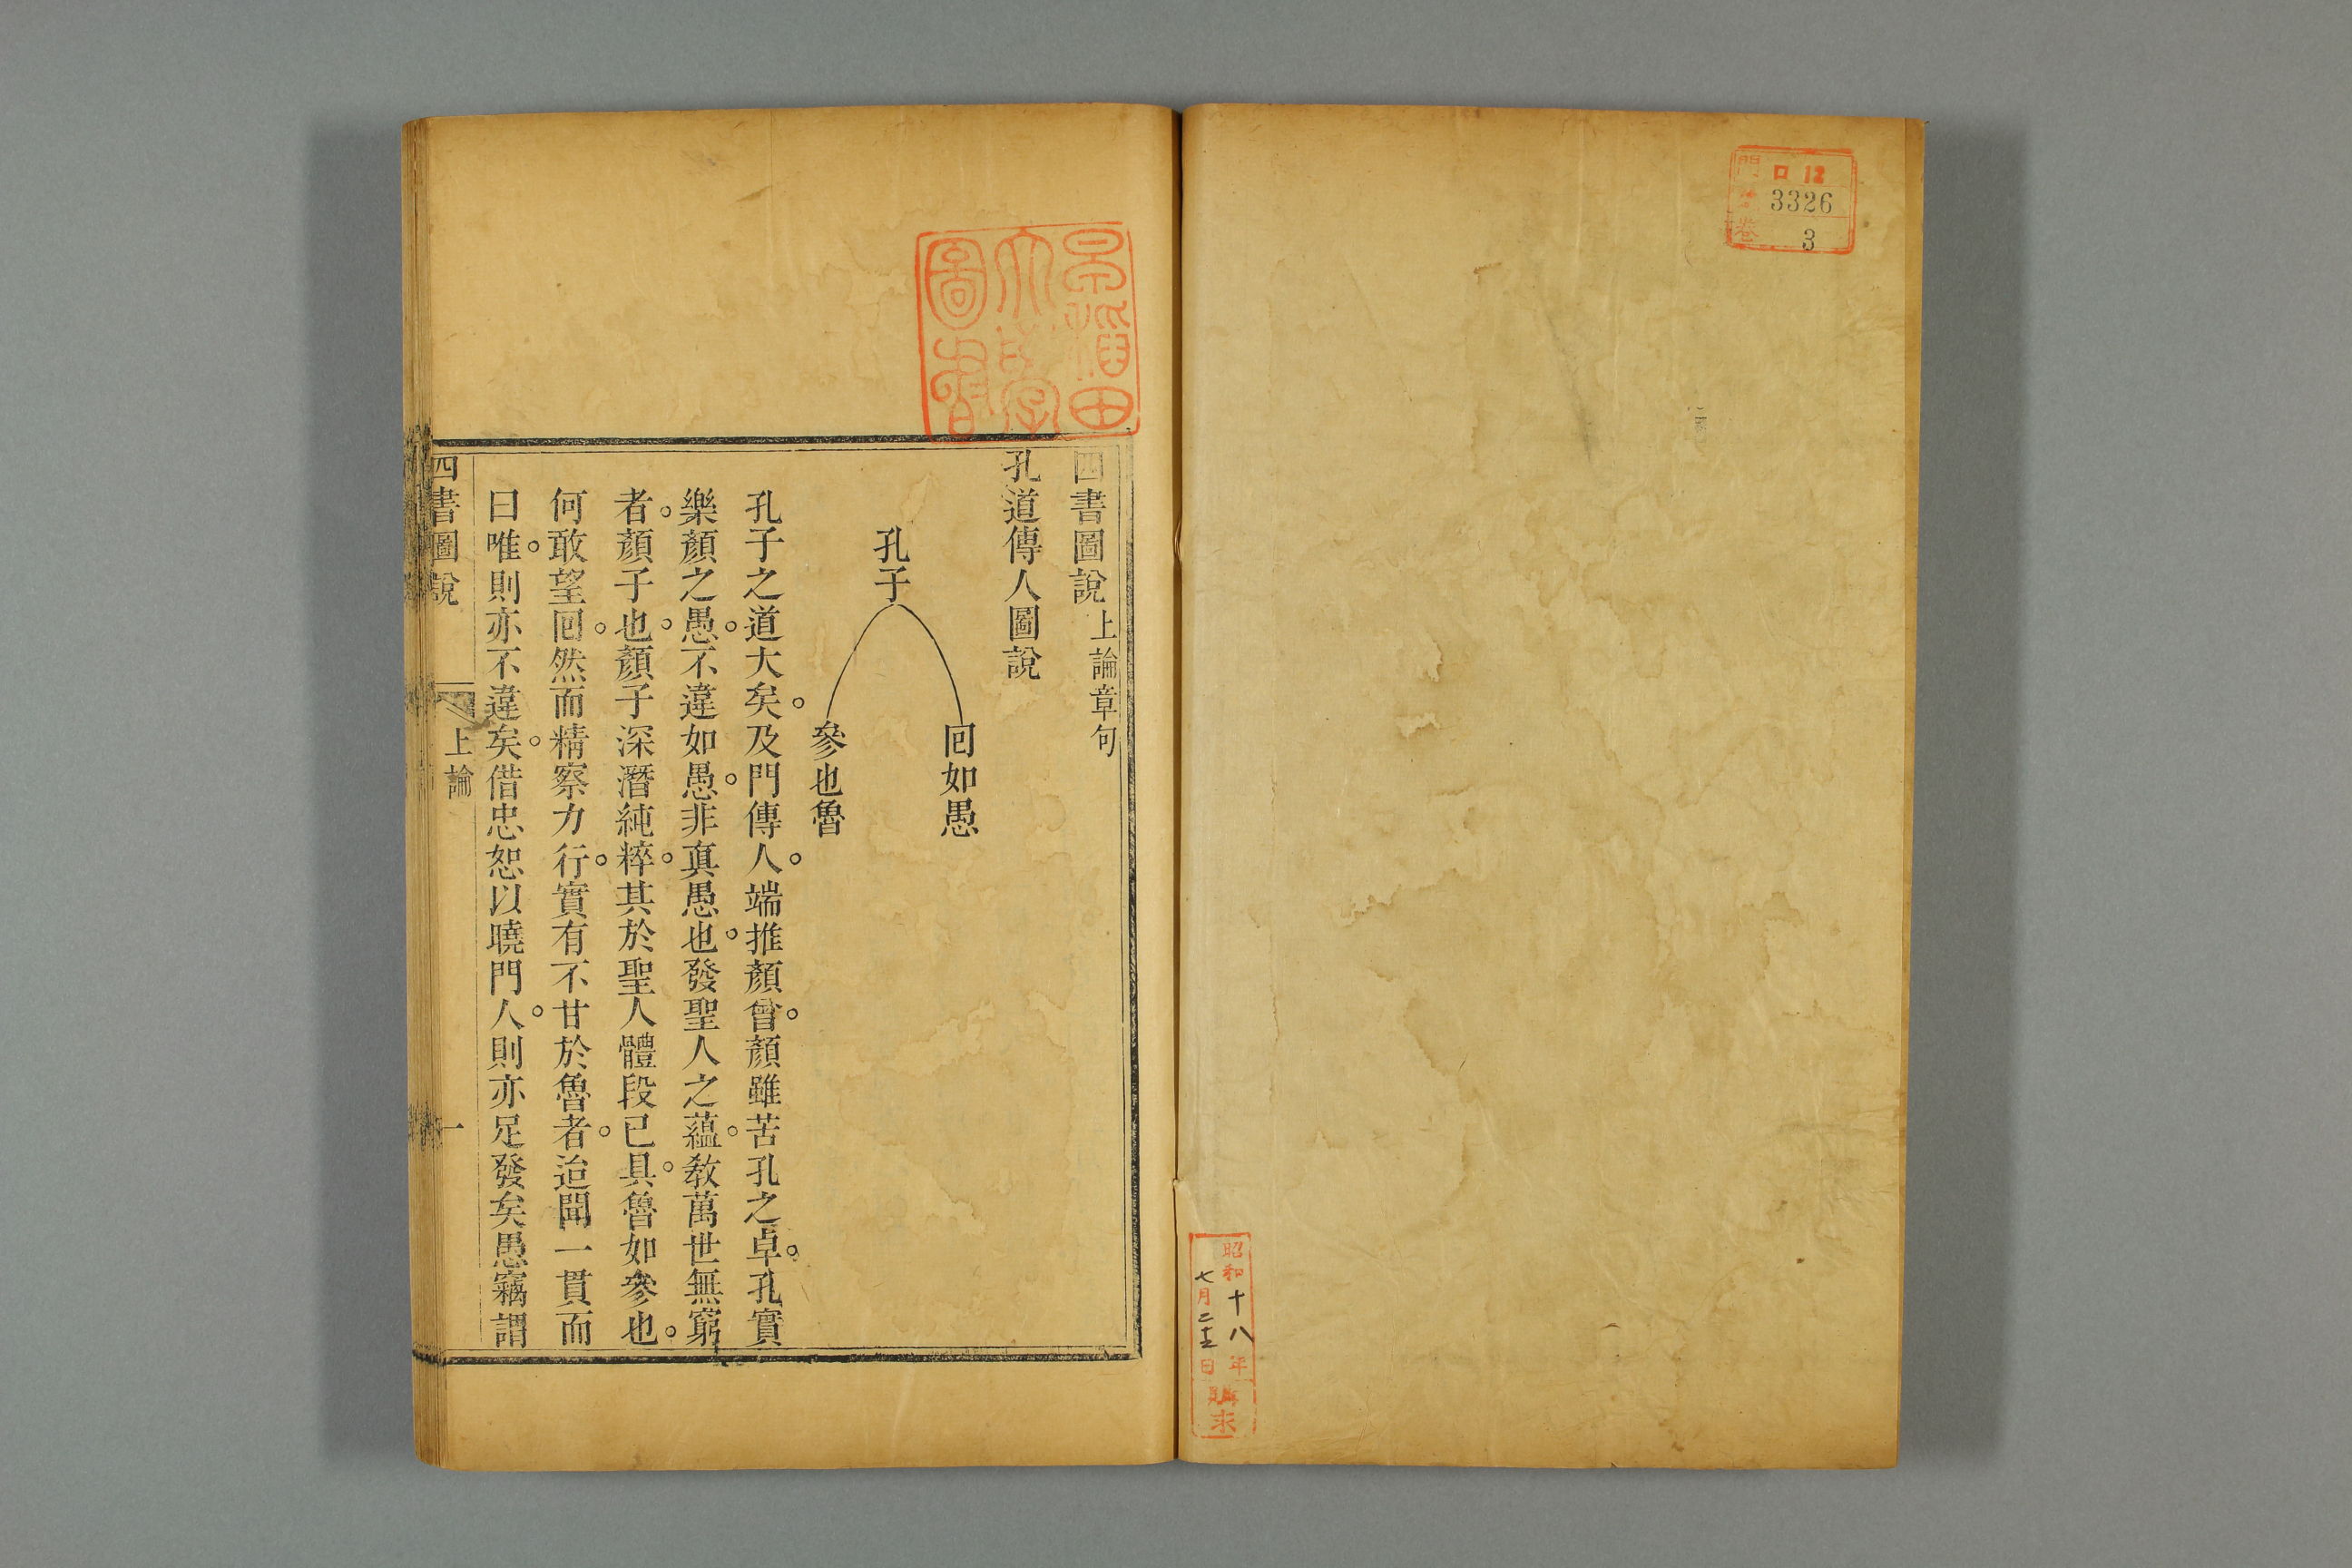 門 ロ 12
3326
卷 3
昭和十八年
七月二十三日
購求
早稲田
大學
圖書
四書圖說上論章句
孔道傳人圖說
回如愚
孔子
參也魯
孔子之道大矣。及門傳人。端推顏曾。顏雖苦孔之卓。孔實
樂顏之愚。不違如愚。非真愚也。發聖人之蘊。教萬世無窮
者。顏子也。顏子深潛純粹。其於聖人體段已具。魯如參也。
何敢望回。然而精察力行。實有不甘於魯者。迨聞一貫而
曰唯。則亦不違矣。借忠恕以曉門人。則亦足發矣愚竊謂
四書圖說 上論 一